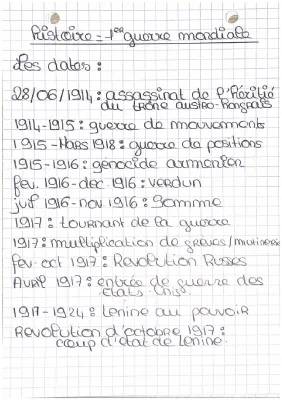 Histoire = 1ère guerre mondiale
Les dates :
28/06/1914 : assassinat de l'héritié
du trône austro-hongrois
1914-1915 : guerre de mouvements
1915-Mars 1918 : guerre de positions
1915-1916 : génocide arménien
fev. 1916-dec. 1916 : verdun
juil 1916-nov. 1916 : Somme
1917 : tournant de la guerre
1917 : multiplication de greves/mutinerie
fev-oct 1917 : Revolution Russes
Avril 1917 : entrée de guerre des
Etats-Unis
1917-1924 : Lenine au pouvoir
Revolution d'octobre 1917 :
coup d'état de Lenine.